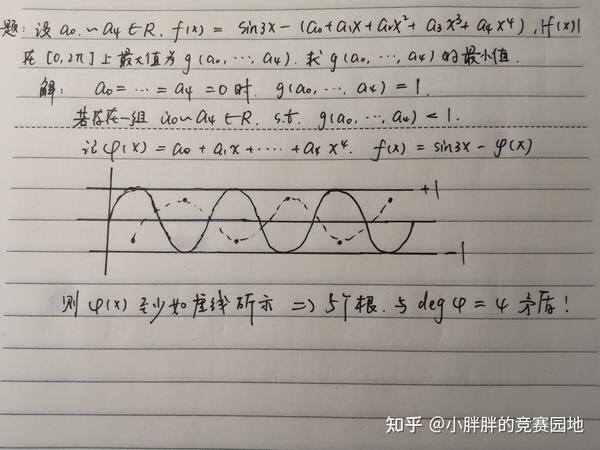 题:设 a₀.~a₄∈R. f(x)= sin3x-(a₀+a₁x+a₂x²+a₃x³+a₄x⁴),|f(x)|
在[0,2π]上最大值为g(a₀,…,a₄).求g(a₀,…,a₄)的最小值.
解: a₀=…=a₄=0时. g(a₀,…,a₄)=1.
若存在一组 a₀~a₄∈R. s.t. g(a₀,…,a₄)<1.
记φ(x)=a₀+a₁x+……+a₄x⁴. f(x)=sin3x-φ(x)
+1
-1
则φ(x)至少如虚线所示 => 5个根.与degφ=4矛盾!
知乎 @小胖胖的竞赛园地